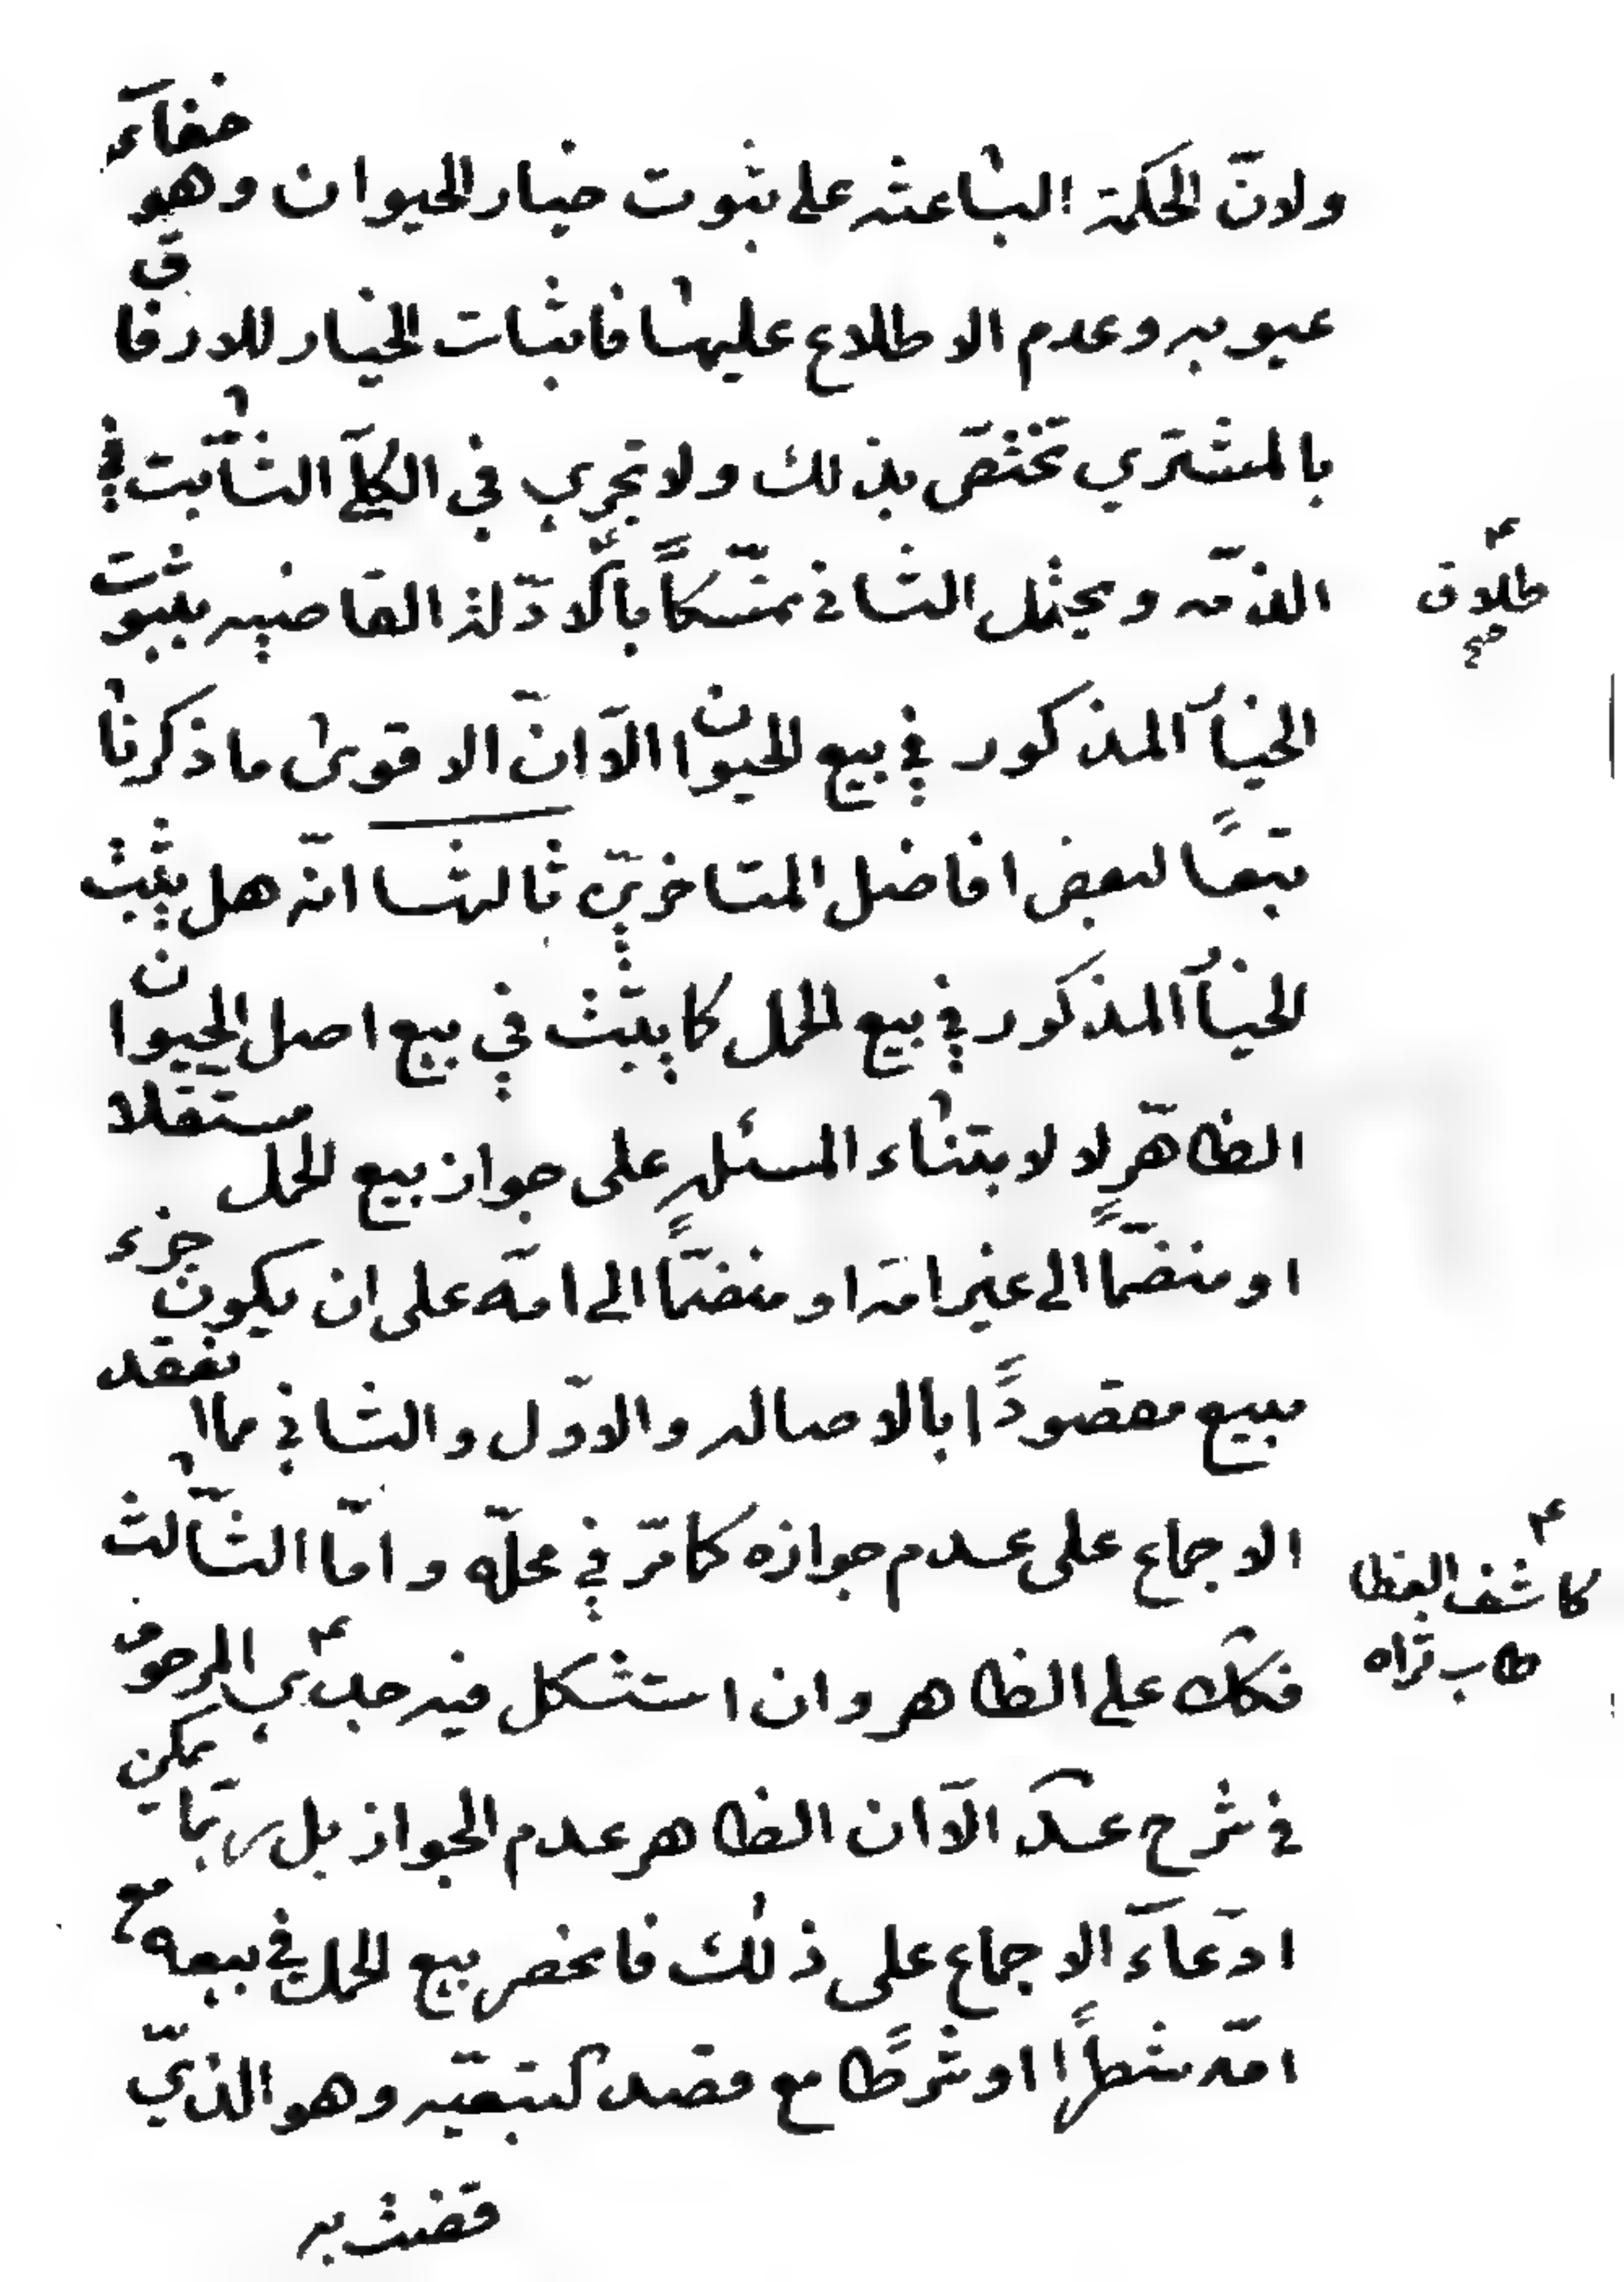 ولانّ الحكمة الباعثه على ثبوت خيار الحيوان وهو خفاء
عيوبه وعدم الاطلاع عليها فاثبات الخيار للارفاق
بالمشتري تختص بذلك ولا تجري في الكلّي الثابت في
الذمّه ويحتمل الثاني تمسّكاً بالادّلة القاضيه بثبوت
الخيار المذكور في بيع الحيوان الّا انّ الاقوى ما ذكرنا
تبعاً لبعض افاضل المتاخرين ثالثها انّه هل يثبت
الخيار المذكور في بيع الحمل كما يثبت في بيع اصل الحيوان
الظاهر لا لابتناء المسئله على جواز بيع الحمل مستقلا
او منضمّاً الى غير امّه او منضمّاً الى امّه على ان يكون جزء
مبيع مقصوداً بالاصاله والاوّل والثاني مما انعقد
الاجماع على عدم جوازه كما مرّ في محلّه وامّا الثالث
فكك على الظاهر وان استشكل فيه جدي المرحوم
في شرح عد الّا ان الظاهر عدم الجواز بل ربّما يمكن
ادّعاء الاجماع على ذلك فانحصر بيع الحمل في بيعه مع
امّه شطراً او شرطاً مع قصد التبعيّه وهو الذي
قضت به
طلاق
صح
كاشف الغطا
طاب ثراه